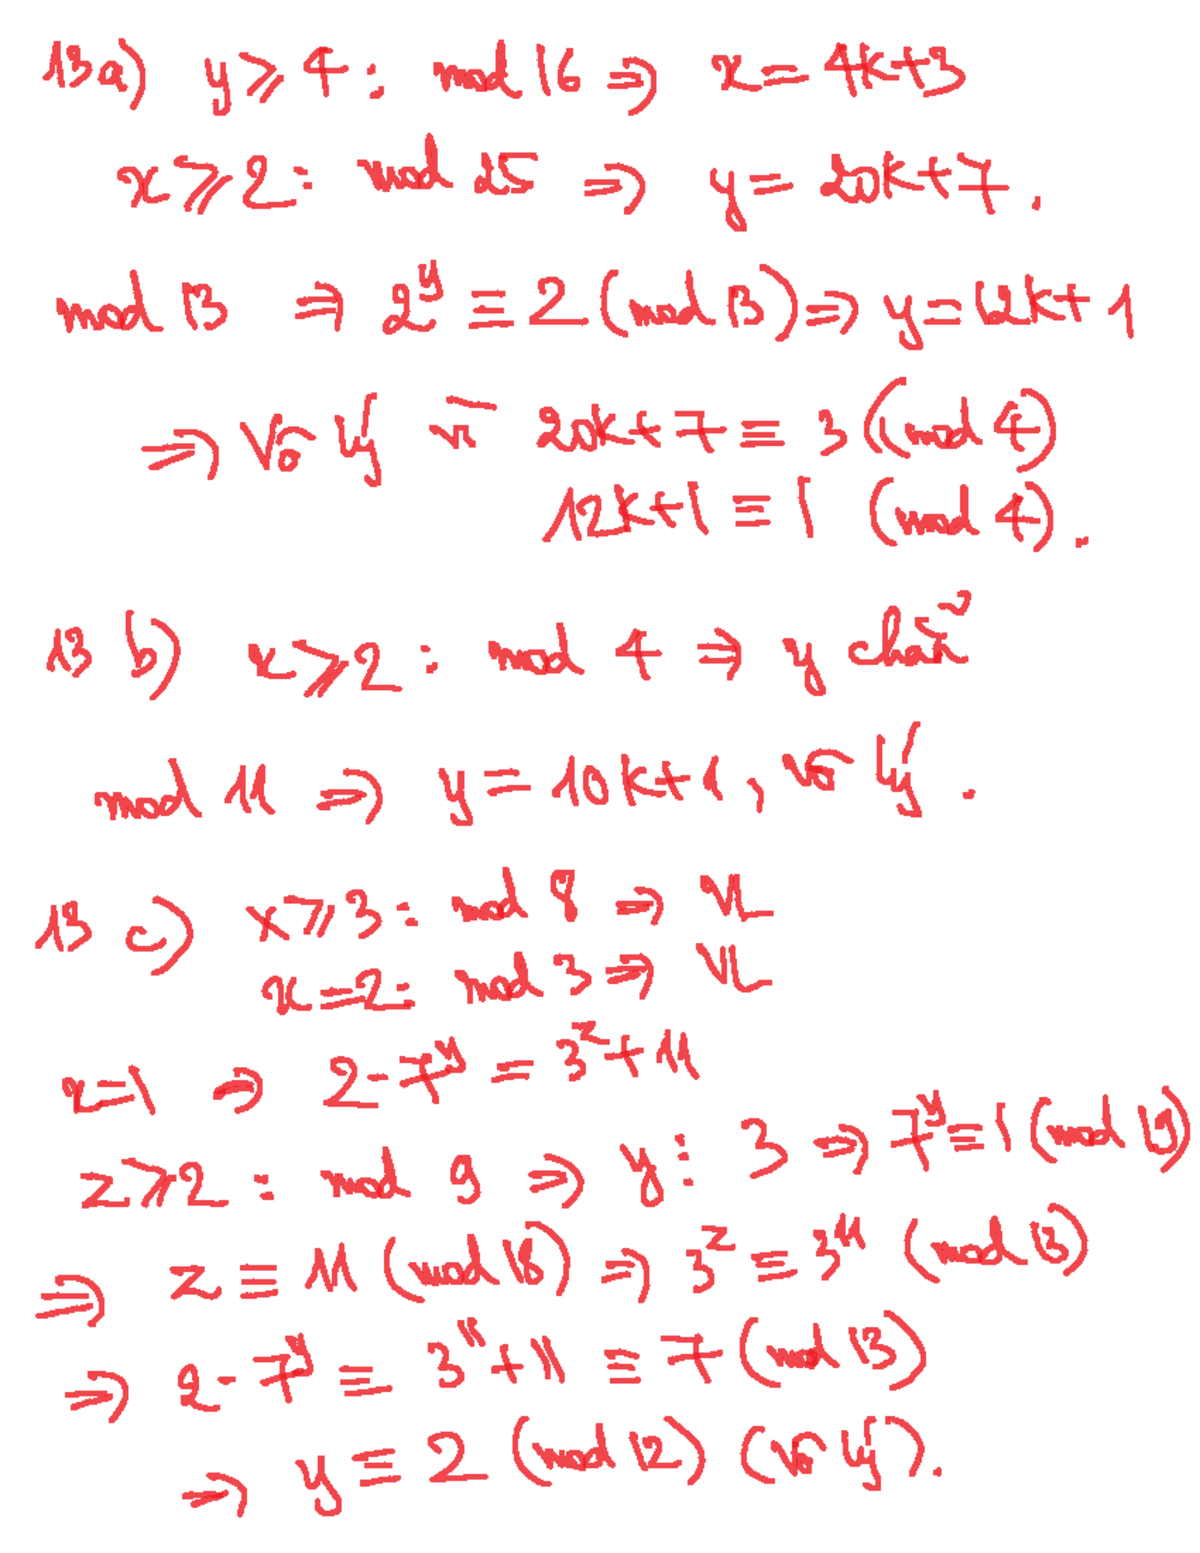 13a) y ⩾ 4 : mod 16 ⇒ x = 4k+3
x ⩾ 2 : mod 25 ⇒ y = 20k+7 .
mod 13 ⇒ 2^y ≡ 2 (mod 13) ⇒ y = 12k+1
⇒ vô lý vì 20k+7 ≡ 3 (mod 4)
12k+1 ≡ 1 (mod 4) .
13 b) x ⩾ 2 : mod 4 ⇒ y chẵn
mod 11 ⇒ y = 10k+1 , vô lý .
13 c) x ⩾ 3 : mod 8 ⇒ VL
x = 2 : mod 3 ⇒ VL
x = 1 ⇒ 2 - 7^y = 3^z + 11
z ⩾ 2 : mod 9 ⇒ y ⋮ 3 ⇒ 7^y ≡ 1 (mod 19)
⇒ z ≡ 11 (mod 18) ⇒ 3^z ≡ 3^11 (mod 13)
⇒ 2 - 7^y ≡ 3^11 + 11 ≡ 7 (mod 13)
⇒ y ≡ 2 (mod 12) (vô lý) .